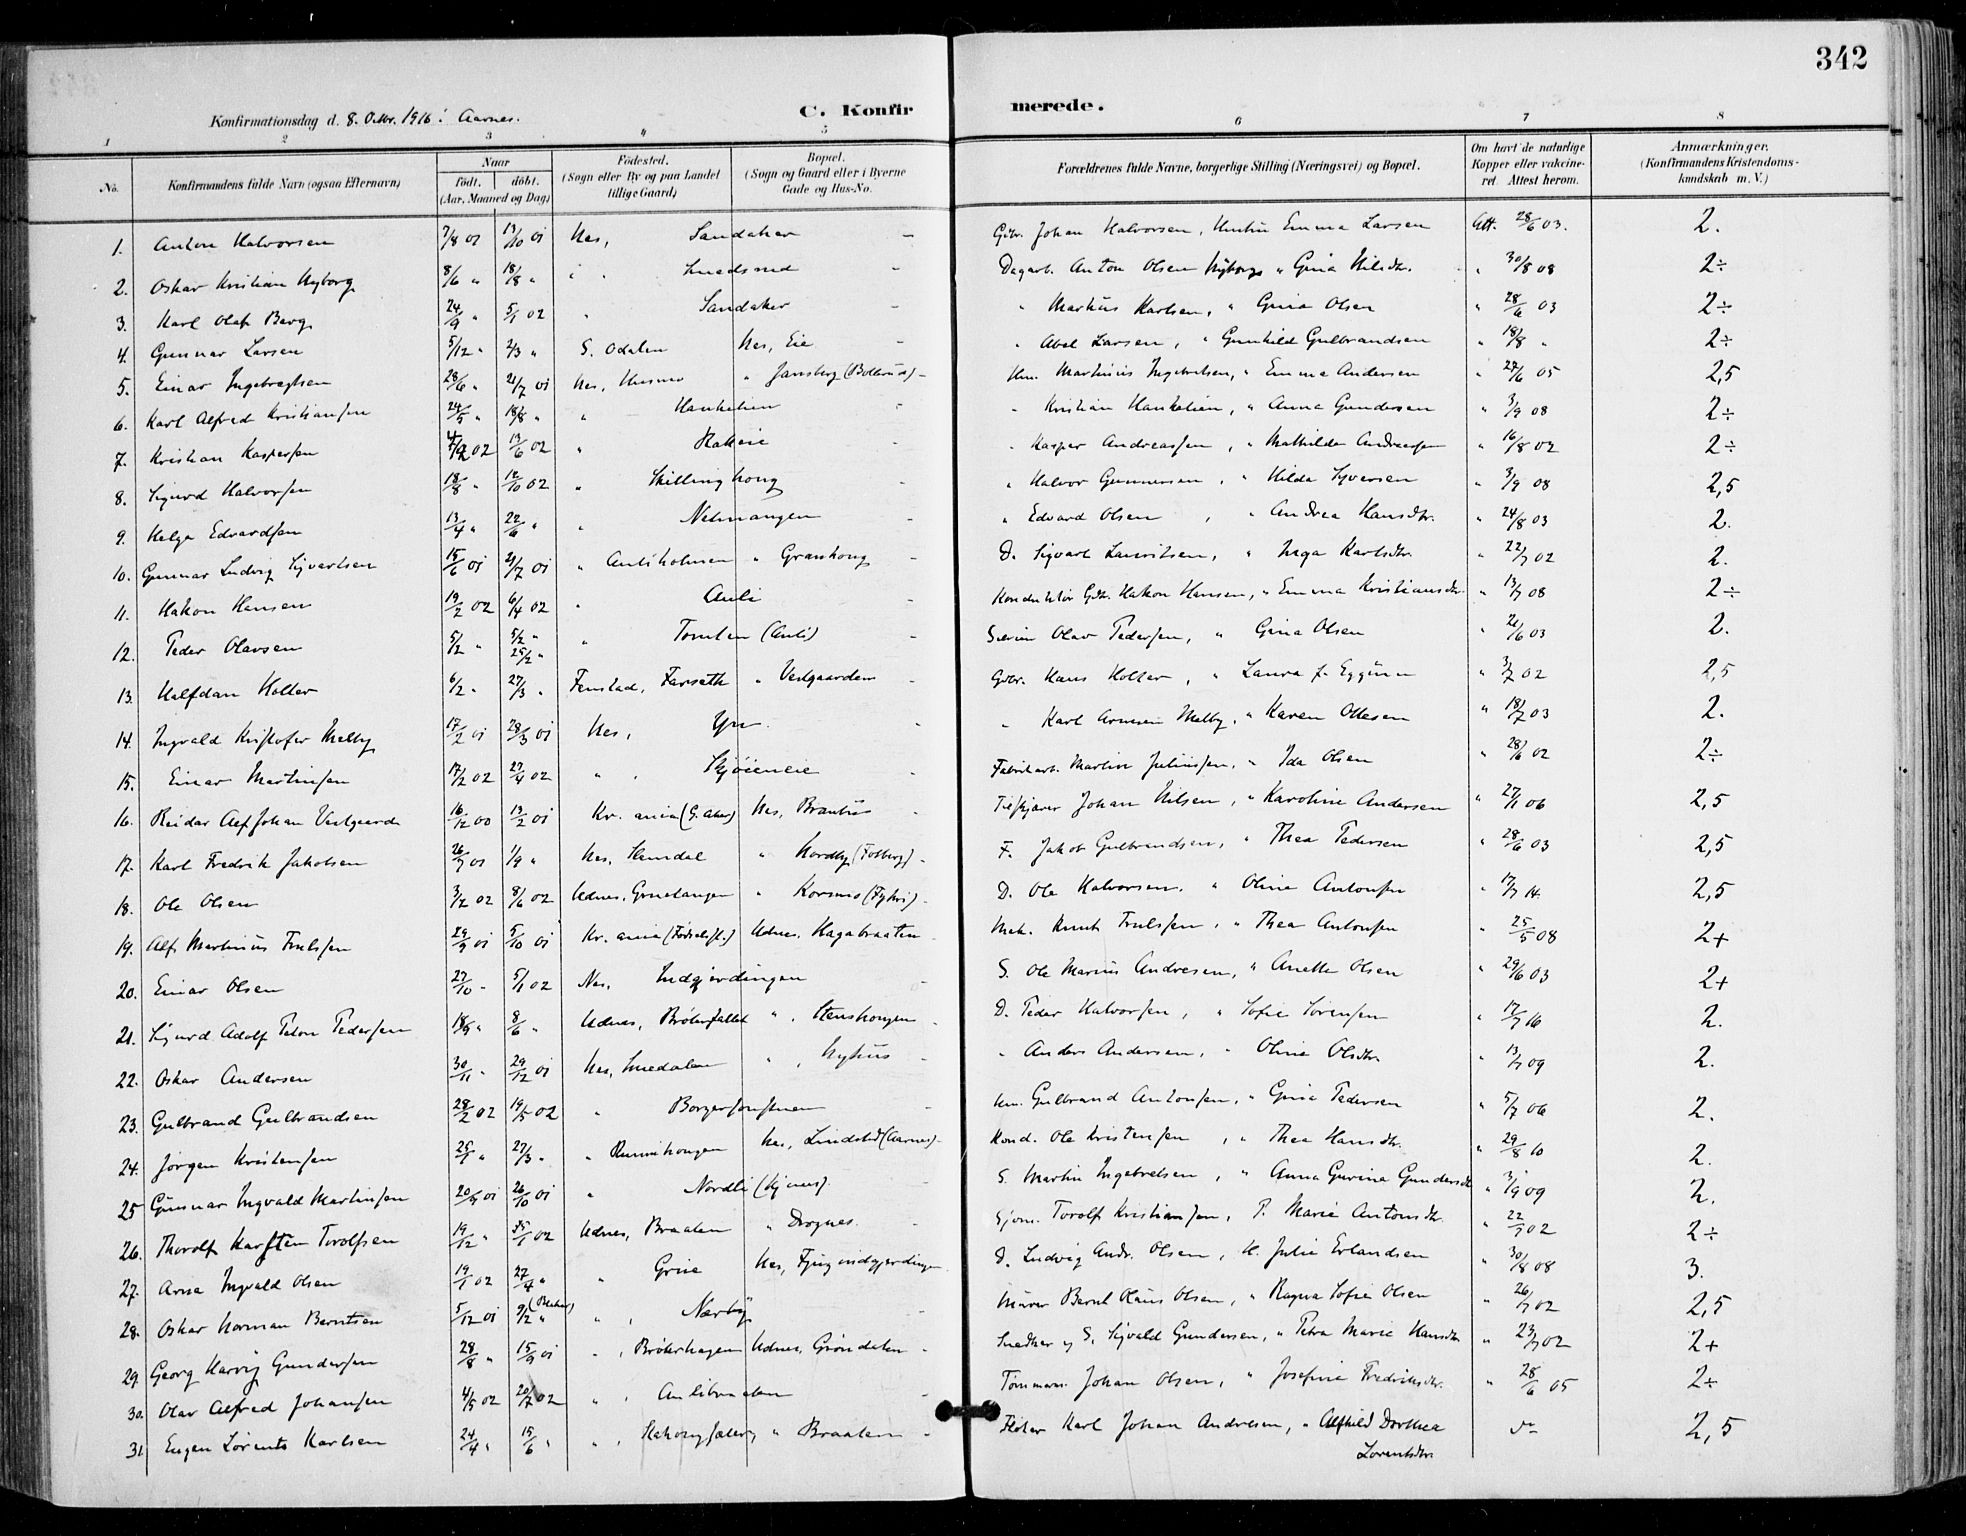 342
C. Konfir merede.
Konfirmationsdag d. 8. Oktbr. 1916 i Aarnes.
1 2 3 " 5 6 7 8
No. Konfirmandens fulde Navn (ogsaa Efternavn) Naar født. døbt. (Aar, Maaned og Dag) Fødested. (Sogn eller By og paa Landet tillige Gaard) Bopæl. (Sogn og Gaard eller i Byerne Gade og Hus-No. Forældrenes fulde Navne, borgerlige Stilling (Næringsvei) og Bopæl. Om havt de naturlige Kopper eller vakcineret. Attest herom. Anmærkninger. (Konfirmandens Kristendomskundskab m. V.)
1. Anton Halvorsen 7/8 01 13/10 01 Nes, Sandaker - Gbr. Johan Halvorsen, Hustru Emma Larsen Att. 28/6 03. 2.
2. Oskar Kristian Nyborg 8/6 " 18/8 " - Dagarb. Anton Olsen Nyborg, " Gina Nilsdtr. " 30/8 08 2÷
3. Karl Olaf Berg 24/9 " 5/1 02 " Sandaker - " Markus Karlsen, " Gina Olsen " 28/6 03 2÷
4. Gunnar Larsen 5/12 " 2/3 " S. Odalen Nes, Eie - " Abel Larsen, " Gunhild Gulbrandsen " 18/8 " 2÷
5. Einar Ingebregtsen 28/6 " 21/7 01 Nes, " Jansberg (Bollerud) - Hm. Martinius Ingebretsen, " Emma Andersen " 27/6 05 2,5
6. Karl Alfred Kristiansen 24/5 " 18/8 " " Hankelien - " Kristian Hankelien, " Anna Gundersen " 3/9 08 2÷
7. Kristian Kaspersen 02 13/6 02 " - " Kasper Andreassen, " Mathilde Andreassen " 16/8 02 2÷
8. Sigurd Halvorsen 18/8 " 12/10 02 " Skillinghoug - " Halvor Gunnersen, " Hilda Syversen " 3/9 08 2,5
9. Helge Edvardsen 13/4 " 22/6 " " - " Edvard Olsen, " Andrea Hansdtr. " 24/8 03 2.
10. Gunnar Ludvig Sigvartsen 15/6 01 21/7 01 " Auliholmen " Granhoug - D. Sigvart Lauritsen, " Inga Karlsdtr. " 22/7 02 2.
11. Hakon Hansen 19/2 02 6/4 02 " Auli - Konduktør Gbr. Hakon Hansen, " Emma Kristiansdtr. " 13/7 08 2÷
12. Peder Olavsen 5/2 " 5/2 " 25/2 " " Tomten (Auli) - Olav Pedersen, " Gina Olsen " 21/6 03 2.
13. Halfdan Holter 6/2 " 27/3 " Fenstad, Farseth " Vestgaarden - Gbr. Hans Holter, " Laura f. Eggum " 3/7 02 2,5
14. Ingvald Kristofer Melby 17/2 01 28/3 01 Nes, - " Karl Melby, " Karen Ottesen " 18/7 03 2.
15. Einar Martinsen 17/2 02 27/4 02 " " Skjøieneie - Fabrikarb. Martin Juliussen, " Ida Olsen " 28/6 02 2÷
16. Reidar Alf Johan Vestgaard 16/12 00 13/2 01 Kr.ania (G. Aker) Nes, - Johan Nilsen, " Karoline Andersen " 27/1 06 2,5
17. Karl Fredrik Jakobsen 01 1/9 " Nes, Hemdal " Nordby - F. Jakob Gulbrandsen, " Thea Pedersen " 28/6 03 2,5
18. Ole Olsen 3/2 02 8/6 02 Udnes, " Korsmo - D. Ole Halvorsen, " Oline Antonsen " 17/7 14. 2,5
19. Alf Martinius Trulssen 29/9 01 5/10 01 Kr.ania (Fødselsst.) Udnes, Hagabraaten - Mek. Knut Trulssen, " Thea Antonsen " 25/5 08 2+
20. Einar Olsen 27/10 - 5/1 02 Nes, Indgjerdingen - S. Ole Marius Andresen, " Anette Olsen " 29/6 03 2+
21. Sigurd Adolf Pedersen " 8/6 " Udnes, Brøterfallet ", Stenshougen - D. Peder Halvorsen, " Sofie Sørensen " 17/7 16 2.
22. Oskar Andersen 30/11 - 29/12 01 Nes, Smedalen ", Nyhus - " Anders Andersen, " Oline Olsdtr. " 13/7 09 2.
23. Gulbrand Gulbrandsen 28/2 02 19/5 02 " - Hm. Gulbrand Antonsen, " Gina Pedersen " 5/7 06 2.
24. Jørgen Kristensen 25/1 " 27/3 " " Nes, Lindstad (Aarnes) - Kond. Ole Kristensen, " Thea Hansdtr. " 29/8 10 2.
25 Gunnar Ingvald Martinsen 20/9 01 26/10 01 " Nordli - S. Martin Ingebretsen, " Anna Gurine Gundersdtr. " 3/9 09 2.
26. Thorolf Karsten Torolfsen 19/12 " 25/1 02 Udnes, Braaten " Drognes. - Sjøm. Torolf Kristiansen, P. Marie Antonsdtr. " 22/7 02 2÷
27. Arne Ingvald Olsen 19/1 02 27/4 " " Grine Nes, - D. Ludvig Andr. Olsen, H. Julie Erlandsen " 30/8 08 3.
28. Oskar Norman Berntsen 5/12 01 9/2 " " , Nærby - Murer Bernt Olsen, " Ragna Sofie Olsen " 26/7 02 2,5
29. Georg Harvig Gundersen 28/8 " 15/9 01 " , Brøterhagen Udnes, Grøndalen - Snedker og S. Sigvald Gundersen, " Petra Marie Hansdtr. " 23/7 02 2+
30. Olav Alfred Johansen 4/5 02 20/7 02 " , Aulibraaten - Tømmerm. Johan Olsen, " Josefine Fredriksdtr. " 28/6 05 2÷
31. Eugen Lorents Karlsen 24/4 " 15/6 " " , " Braaten - Karl Johan Andresen, " Alfhild Dorthea Lorentsdtr. 2,5